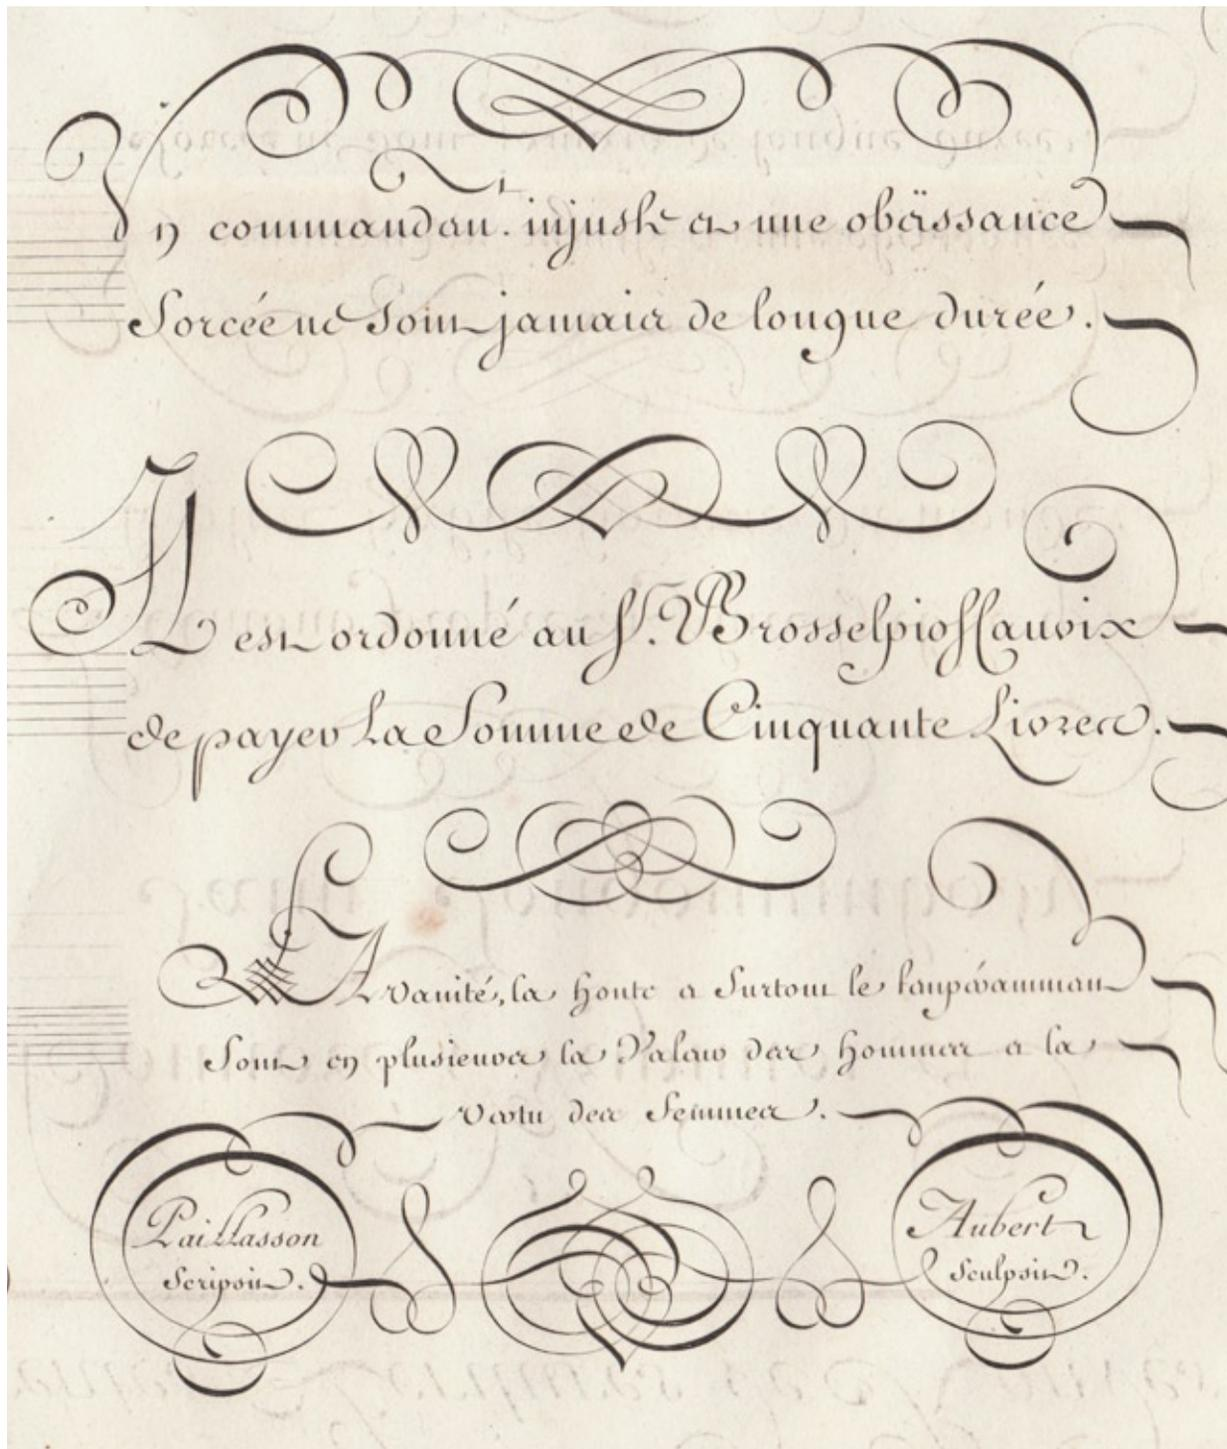 Un commandant injuste et une obëissance
Forcée ne Sont jamais de longue durée.
Il est ordonné au Sr. Brosselpiossauvix
de payer La Somme de Cinquante Livres.
La vanité, la honte et Surtout le tempéramment
Sont en plusieurs la Valeur des hommes et la
vertu des Femmes.
Paillasson
Scripsit.
Aubert
Sculpsit.